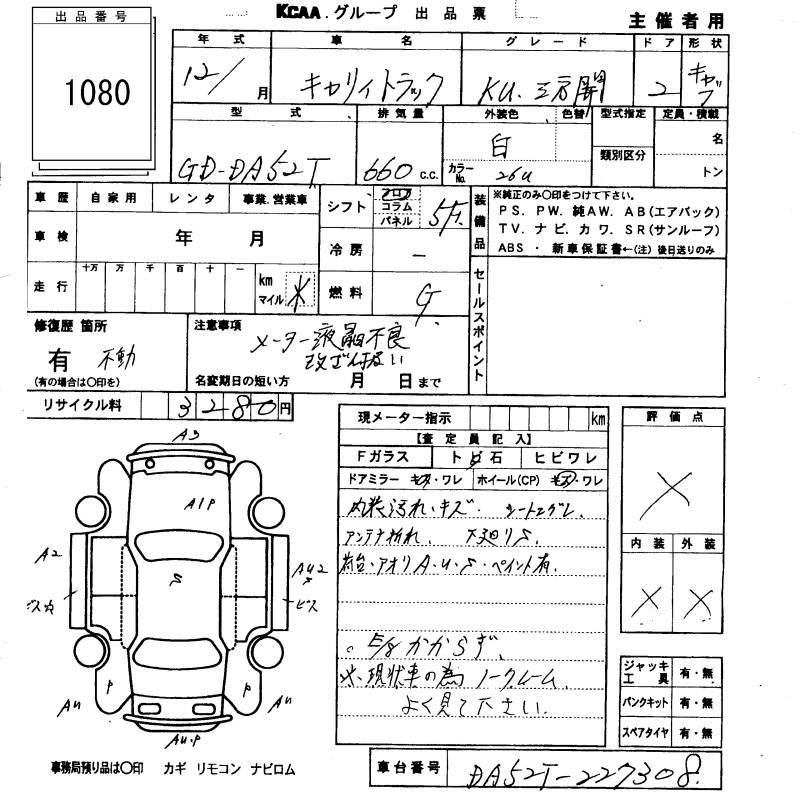 KCAA.グループ 出品票
主催者用
出品番号
1080
年式 車名 グレード ドア 形状
12/ 月 キャリイトラック KU.三方開 2 キャブ
型式 排気量 外装色 色替 型式指定 定員・積載
GD-DA52T 660 C.C. 白 名
カラーNo. 26U 類別区分 トン
車歴 自家用 レンタ 事業.営業車 シフト フロア コラム パネル 5F. 装備品 ※純正のみ○印をつけて下さい。
PS. PW. 純AW. AB(エアバック)
TV. ナビ. カワ. SR(サンルーフ)
ABS ・ 新車保証書←(注) 後日送りのみ
車検 年 月 冷房 -
走行 十万 万 千 百 十 一 km マイル ※ 燃料 G
セールスポイント
修復歴 箇所
有 不動
(有の場合は○印を)
注意事項
メーター液晶不良
改ざん扱い
名変期日の短い方 月 日まで
リサイクル料 3280円
現メーター指示 km
【査定員記入】
Fガラス トビ石 ヒビワレ
ドアミラー キズ・ワレ ホイール(CP) キズ・ワレ
内装汚れ・キズ. シートコゲ
アンテナ折れ. 下廻りS
荷台・アオリA・U・S・ペイント有
。E/gかからず.
※.現状車の為ノークレーム.
よく見て下さい.
評価点
X
内装 外装
X X
ジャッキ工具 有・無
パンクキット 有・無
スペアタイヤ 有・無
車台番号 DA52T-227308.
A3
A1P
A2
S
AU2
S
ビス
P
P
AU
AU
AU.P
事務局預り品は○印 カギ リモコン ナビロム